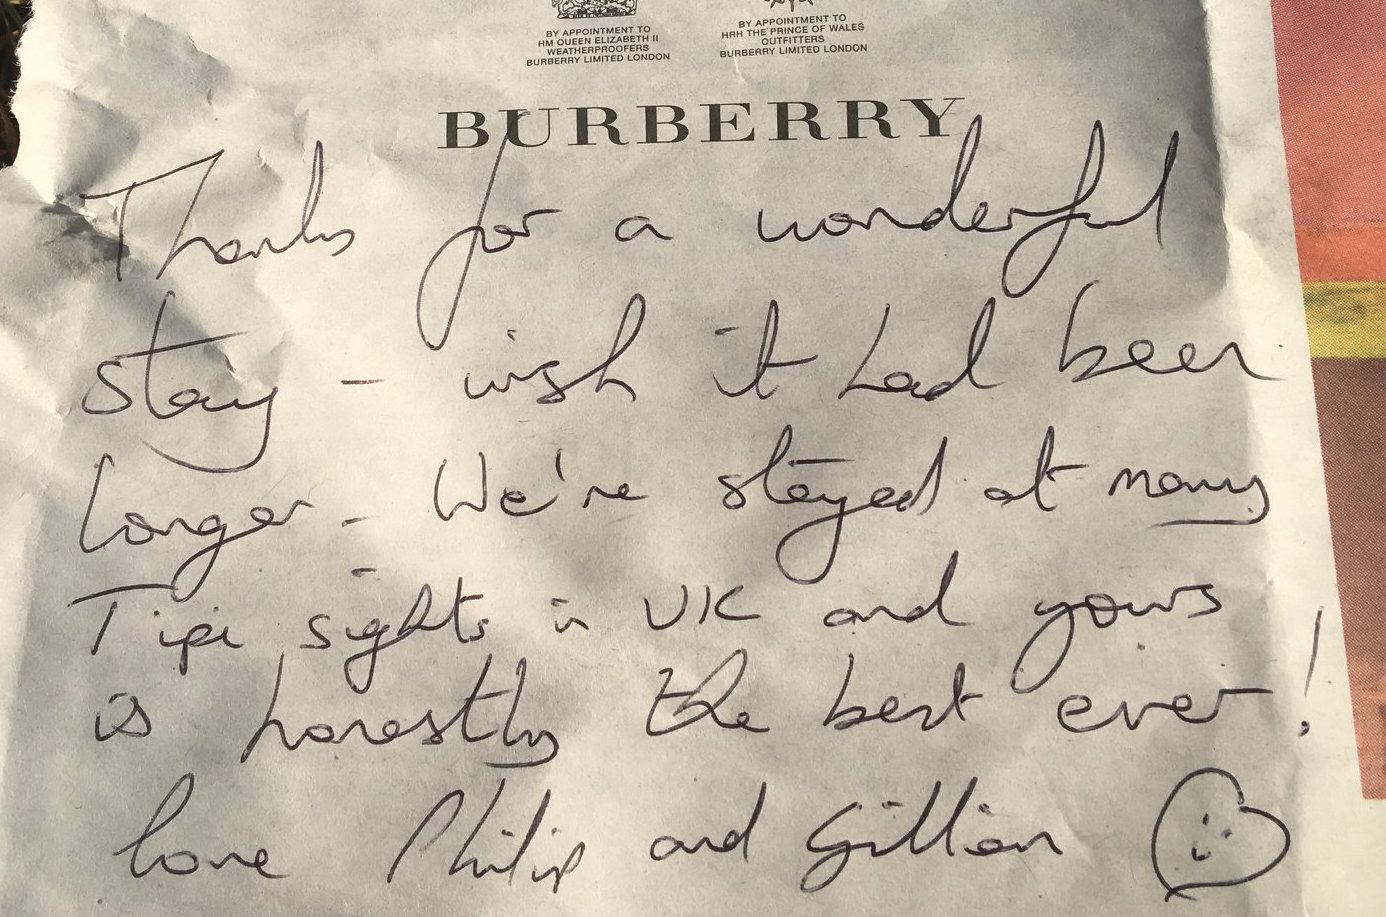 BY APPOINTMENT TO BY APPOINTMENT TO
HM QUEEN ELIZABETH II HRH THE PRINCE OF WALES
WEATHERPROOFERS OUTFITTERS
BURBERRY LIMITED LONDON BURBERRY LIMITED LONDON
BURBERRY
Thanks for a wonderful
stay - wish it had been
longer - We're stayed at many
Tipi sights in UK and yours
is honestly the best ever!
love Philip and Gillian